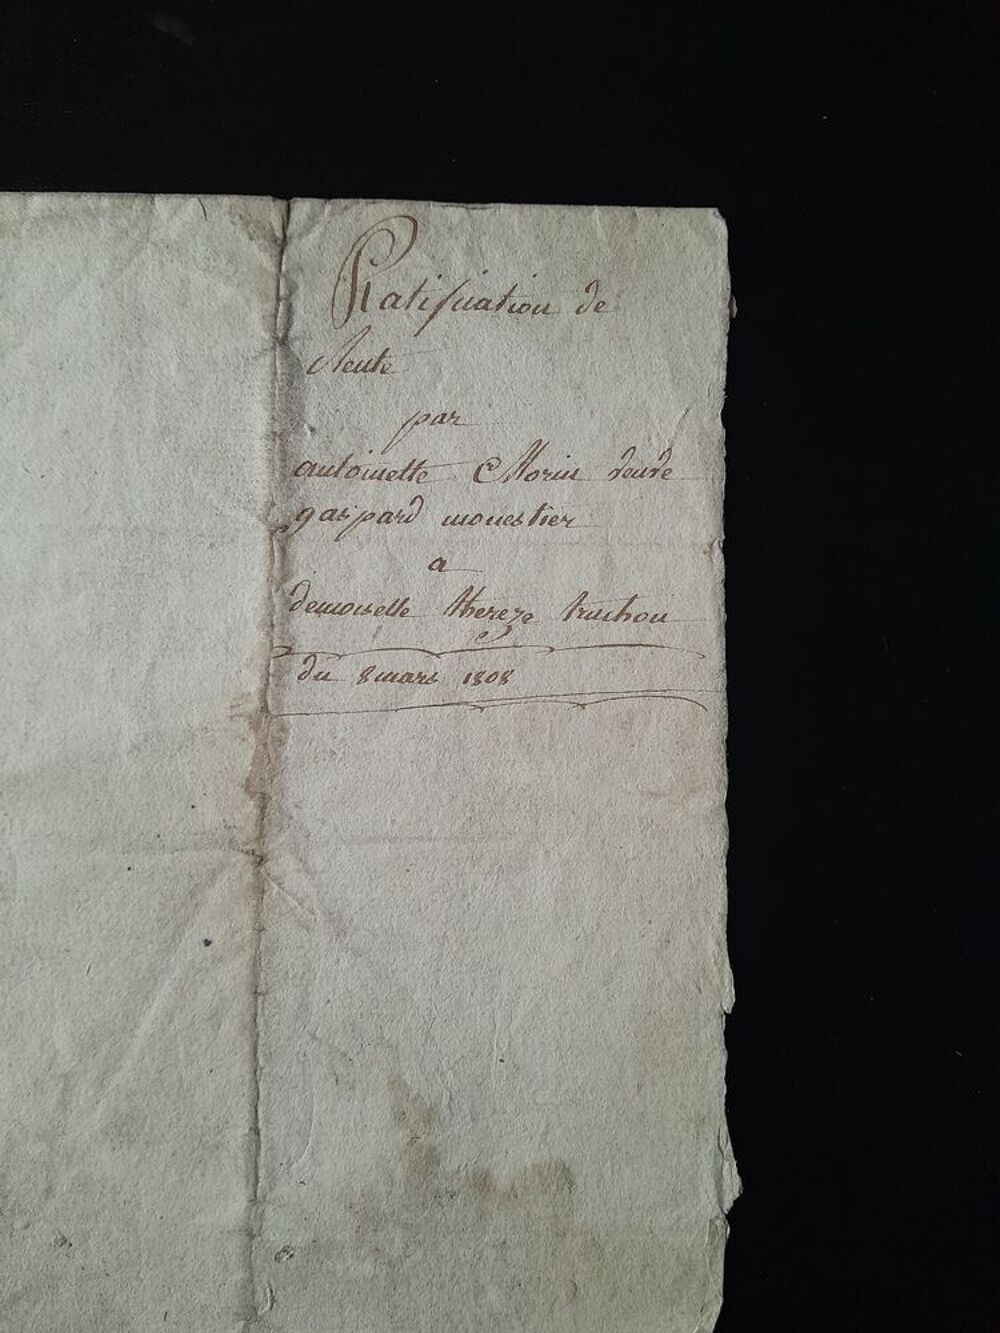 Ratification de
Vente
par
antoinette Morin veuve
gaspard monestier
a
demoiselle thereze truchon
du 8 mars 1808